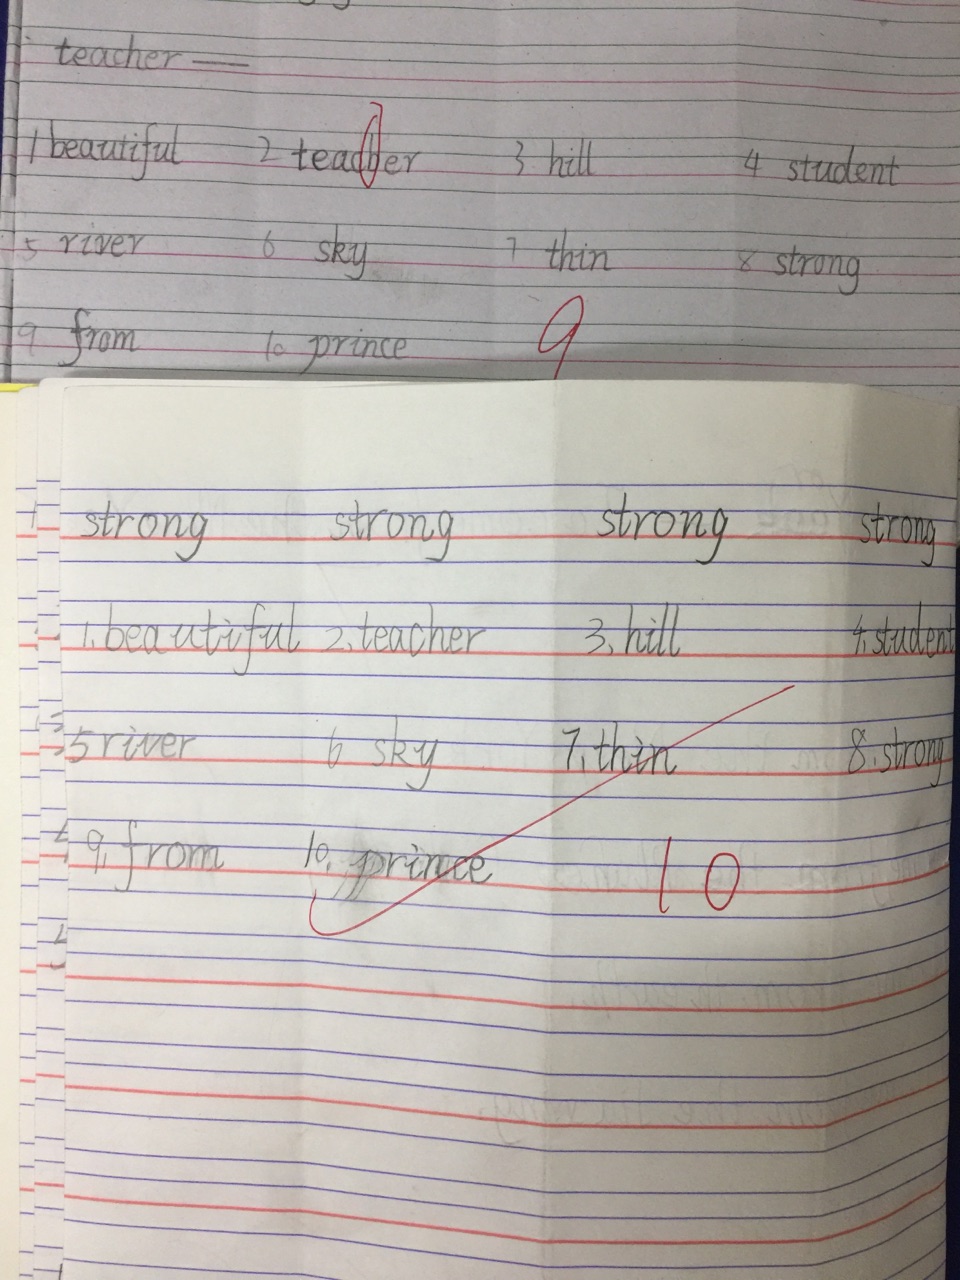 teacher —
1 beautiful 2 teacher 3 hill 4 student
5 river 6 sky 7 thin 8 strong
9 from 10 prince 9
strong strong strong strong
1. beautiful 2. teacher 3. hill 4. student
5 river 6 sky 7. thin 8. strong
9. from 10. prince 10